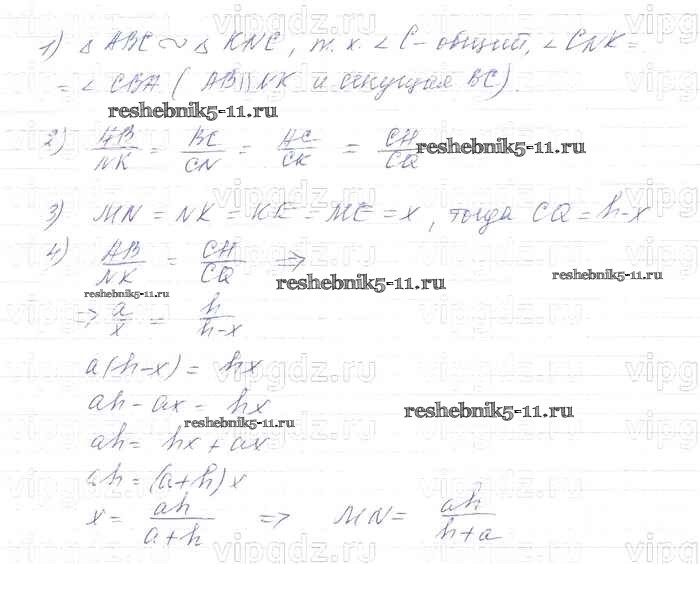 1) △ABC ∼ △KNC, т.к. ∠C - общий, ∠CNK =
= ∠CBA (AB||NK и секущая BC).
reshebnik5-11.ru
2) AB/NK = BC/CN = AC/CK = CH/CQ
reshebnik5-11.ru
3) MN = NK = KE = ME = x, тогда CQ = h-x
4) AB/NK = CH/CQ ⇒
reshebnik5-11.ru
reshebnik5-11.ru
reshebnik5-11.ru
⇒ a/x = h/h-x
a(h-x) = hx
ah - ax = hx
reshebnik5-11.ru
reshebnik5-11.ru
ah = hx + ax
ah = (a+h)x
x = ah/a+h ⇒ MN = ah/h+a
vipgdz.ru